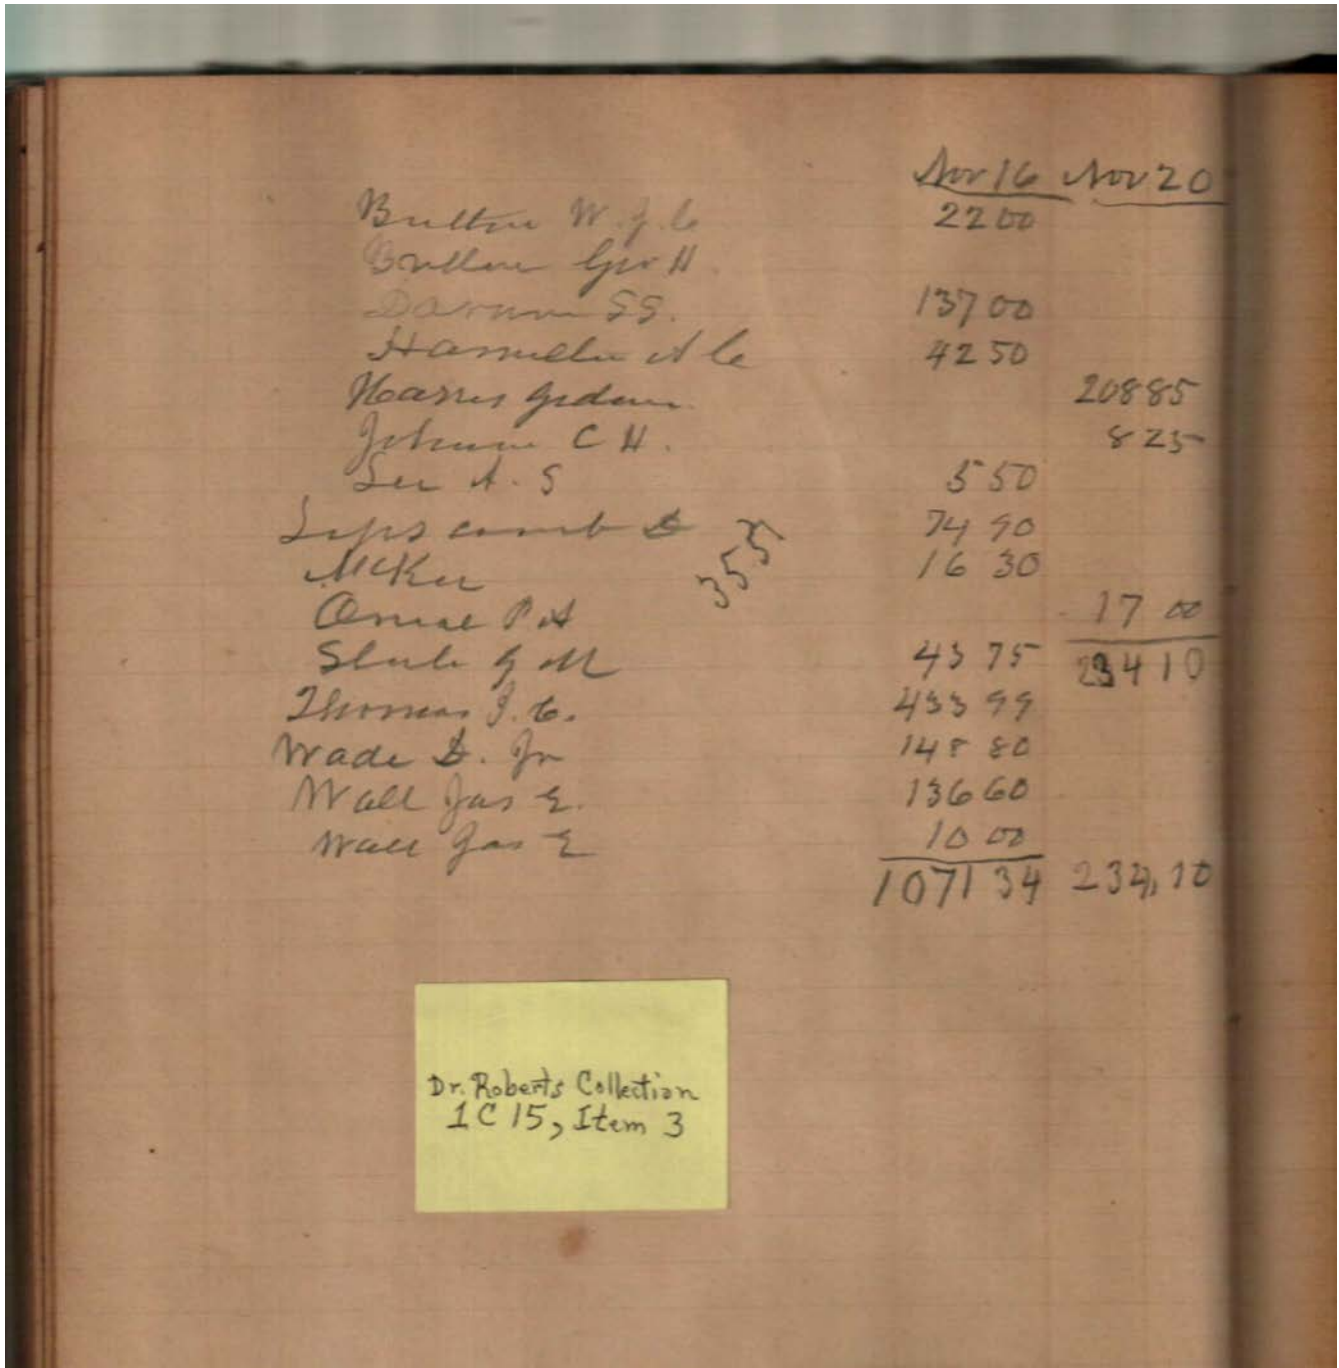 Nov 16 Nov 20
Britton W. J. C 22 00
Britton Geo H.
S S. 137 00
A C 42 50
Harris Gideon 208 85
Johnson C H. 8 25
Lee A. S 5 50
Lipscomb D 74 90
McKee 16 30
355
P A 17 00
G M 43 75 234 10
Thomas J. C. 433 99
Wade D. Jr 148 80
Wall Jas E. 136 60
Wall Jas E 10 00
1071 34 234,10
Dr. Roberts Collection
1 C 15, Item 3